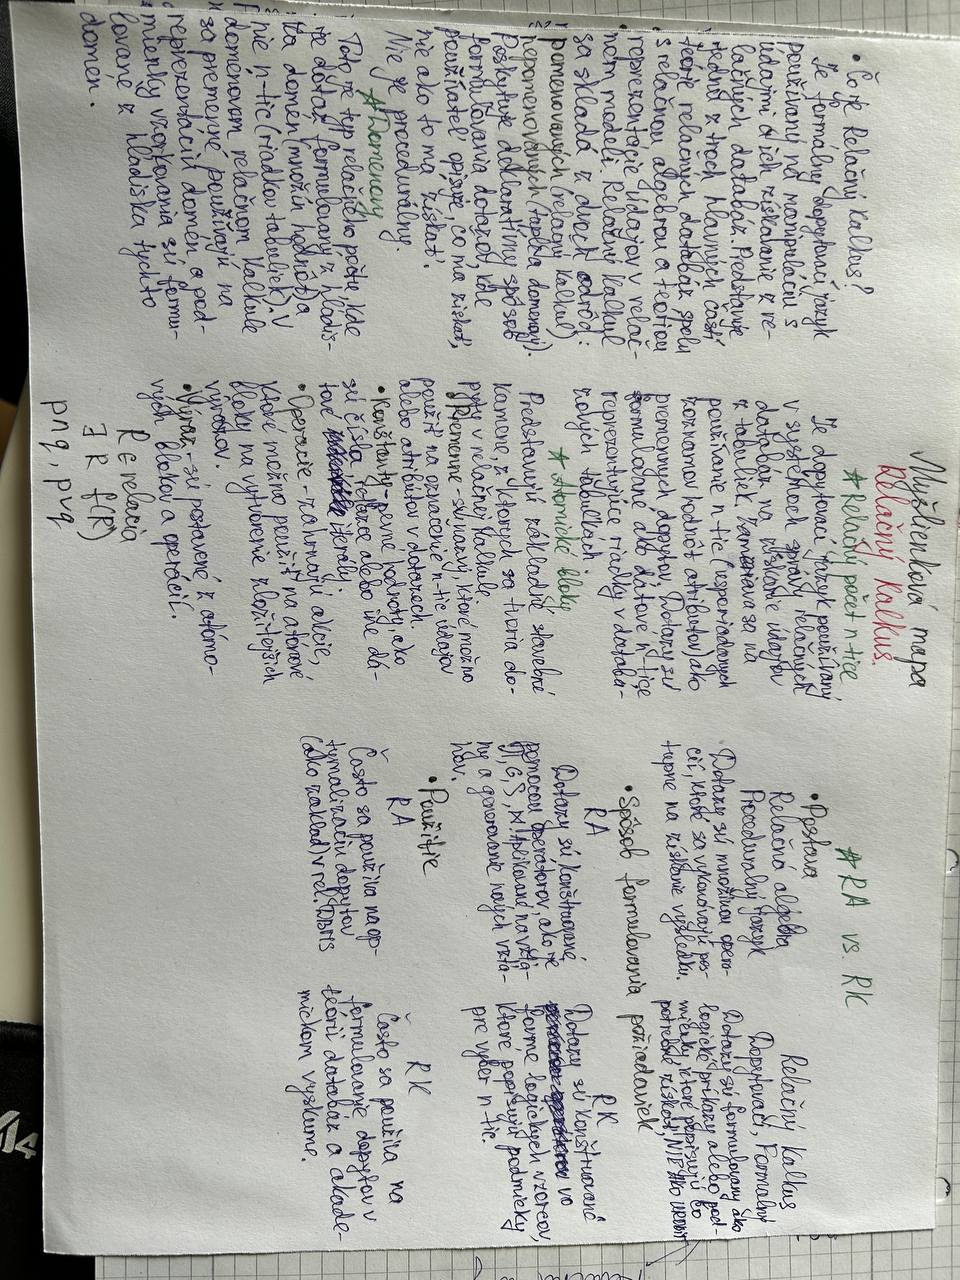 Myšlienková mapa
Relačný kalkus
• Čo je Relačný kalkus?
Je formálny dopytovací jazyk
používaný na manipuláciu s
údajmi a ich získavanie z re-
lačných databáz. Predstavuje
jednu z troch hlavných častí
teórie relačných databáz spolu
s relačnou algebrou a teóriou
reprezentácie údajov v relač-
nom modeli. Relačný kalkul
sa skladá z dvoch odrôd:
pomenovaných (relačný kalkul)
nepomenovaných (tazba domenový).
Poskytuje deklaratívny spôsob
formulovania dotazov, kde
používateľ opisuje, čo má získať,
nie ako to má získať.
Nie je procedurálny.
# Domenový
Toto je typ relačného počtu, kde
je dotaz formulovaný z hľadis-
ka domén (množín hodnôt) a
nie n-tíc (riadkov tabuliek). V
domenovom relačnom kalkule
sa premenné používajú na
reprezentáciu domén a pod-
mienky vzorkovania sú formu-
lované z hľadiska týchto
domén.
# Relačný počet n-tice
Je dopytovací jazyk používaný
v systémoch správy relačných
databáz na získanie údajov
z tabuliek. Zameriava sa na
používanie n-tíc (usporiadaných
zoznamov hodnôt atribútov) ako
premenných dopytov. Dotazy sú
formulované ako dátové n-tice
reprezentujúce riadky v databá-
zových tabuľkách.
# Atomické bloky
Predstavujú základné stavebné
kamene, z ktorých sa tvoria do-
pyty v relačnej kalkule
• Premenne - sú názvy, ktoré možno
použiť na označenie n-tíc údajov
alebo atribútov v dotazoch.
• Konštanty - pevné hodnoty, ako
sú čísla, reťazce alebo iné dá-
tové literály.
• Operácie - zahrňajú akcie,
ktoré možno použiť na atómové
bloky na vytvorenie zložitejších
výrazov.
• Výraz - sú postavené z atómo-
vých blokov a operácií.
R ∈ relácia
∃ R f(R)
p∧q, p∨q
# RA vs. RK
• Postava
Relačná algebra
Procedurálny jazyk
Dotazy sú množinou operá-
cií, ktoré sa vykonávajú pos-
tupne na získanie výsledku.
Relačný kalkus
Dopytovací, Formálny
Dotazy sú formulované ako
logické príkazy alebo pod-
mienky, ktoré popisujú čo
potrebné získať, NIE AKO UROBIŤ
• Spôsob formulovania požiadaviek
RA
Dotazy sú konštruované
pomocou operátorov, ako je
∏, σ, ⋈. Aplikované na vzťa-
hy a generovanie nových vzťa-
hov.
RK
Dotazy sú konštruované
vo
forme logických vzorcov,
ktoré popisujú podmienky
pre výber n-tíc.
• Použitie
RA
Často sa používa na op-
tymalizáciu dopytov
(ako základ) v rel. DBMS
RK
Často sa používa na
formulovanie dopytov v
teórii databáz a akade-
mickom výskume.